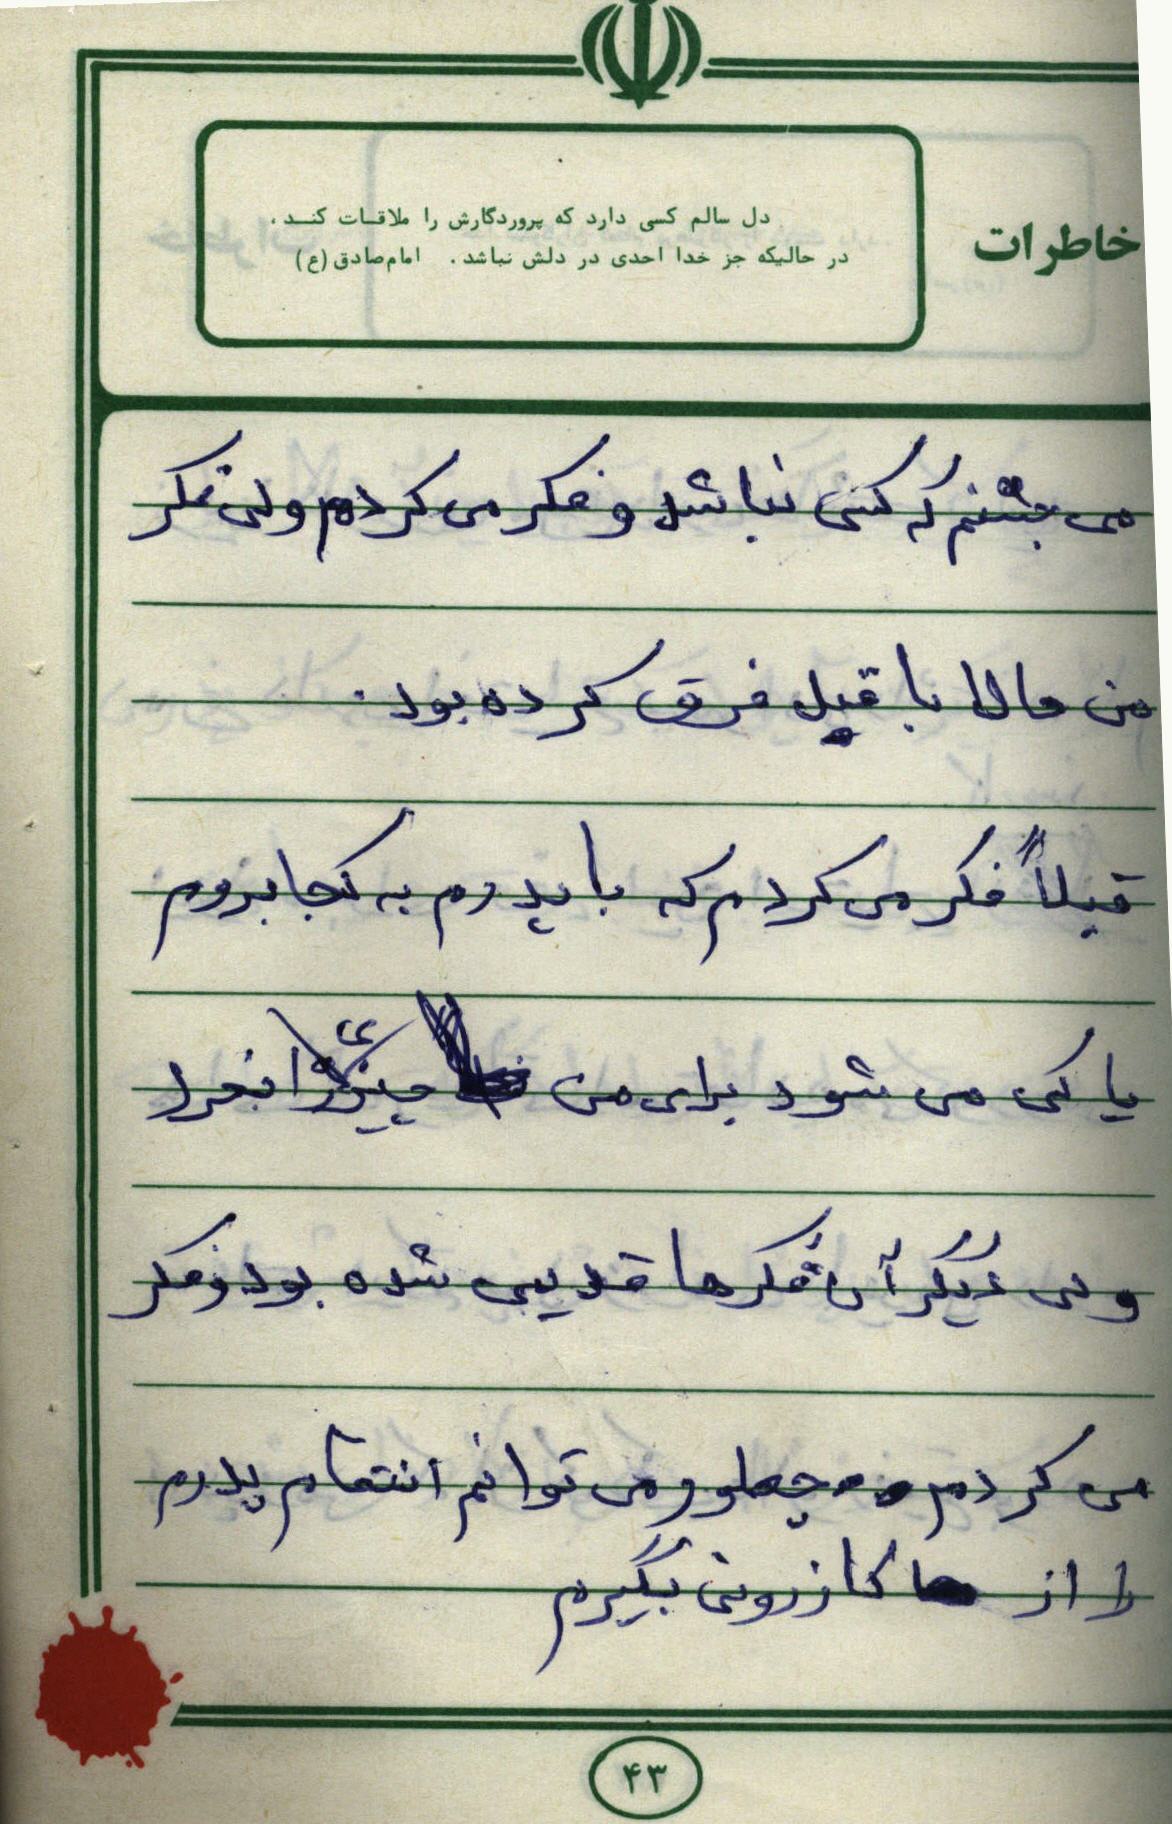 خاطرات
دل سالم کسی دارد که پروردگارش را ملاقات کند.
در حالیکه جز خدا احدی در دلش نباشد. امام صادق (ع)
می که کسی نباشد و فکر می کردم ولی فکر
من حالا با قبل فرق کرده بود.
قبلاً فکر می کردم که با پدرم به کجا بروم
یا کی می شود برای من چیزی بخرد
ولی دیگر آن فکرها قدیمی شده بود و فکر
می کردم چطور می توانم انتقام پدرم
را از کازرونی بگیرم
۴۳